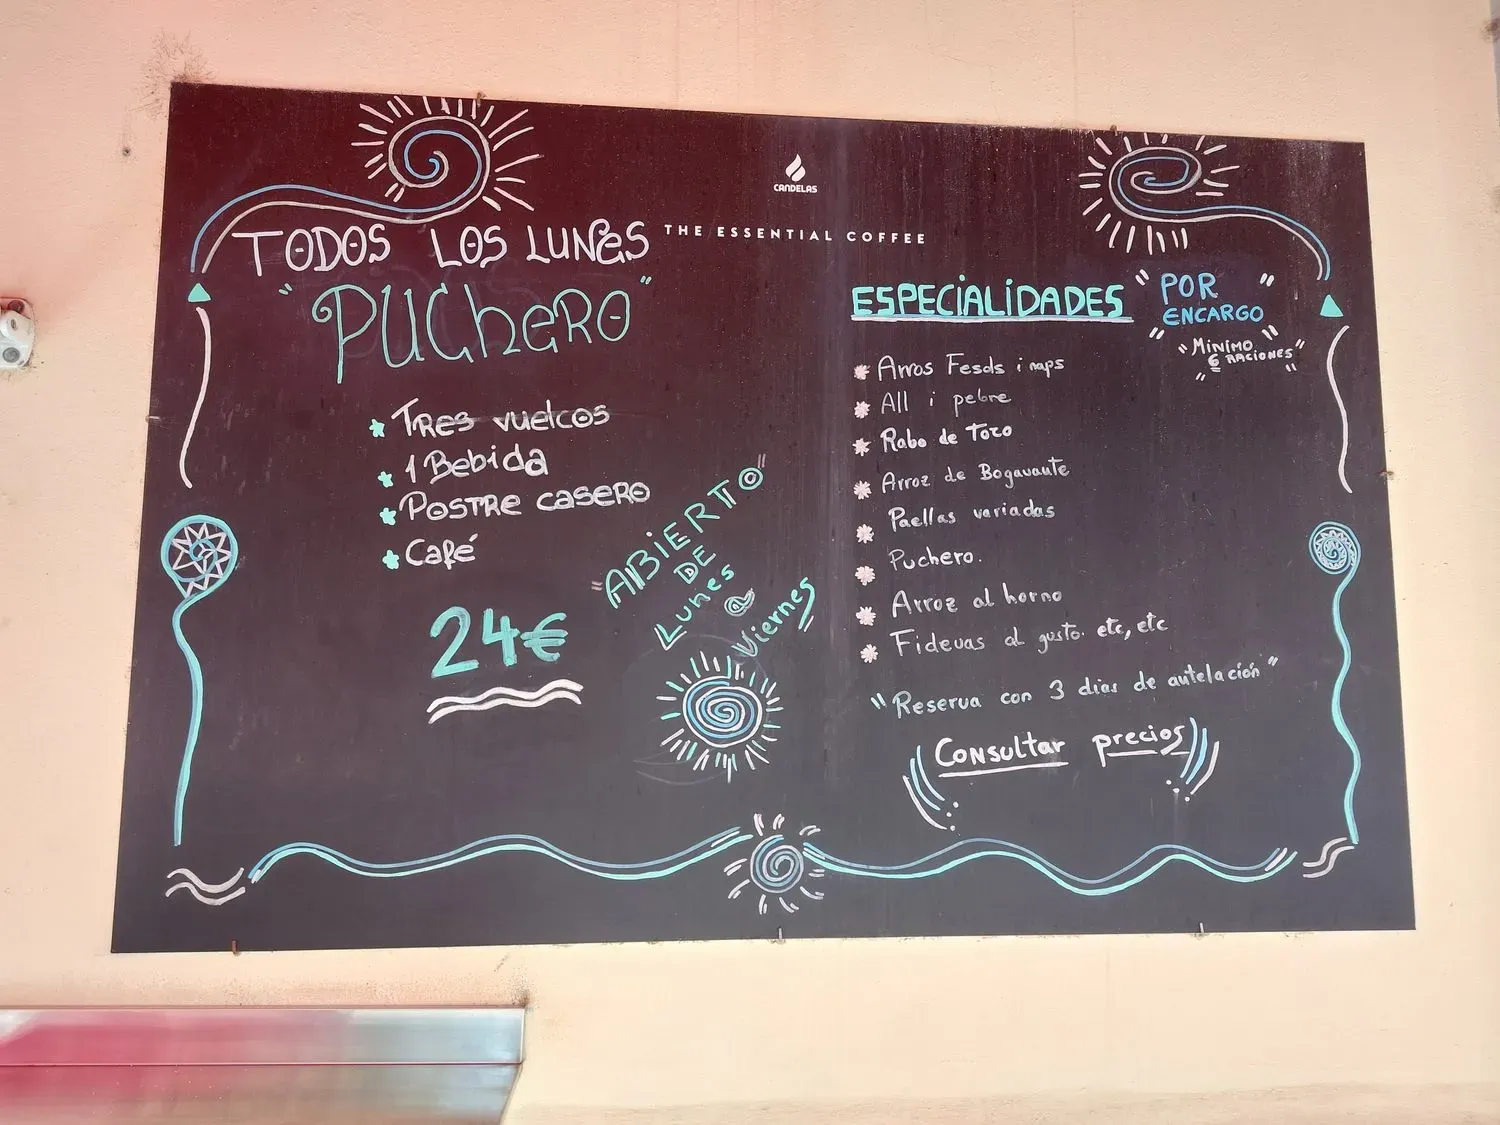 CANDELAS
THE ESSENTIAL COFFEE
TODOS LOS LUNES
"PUCHERO"
TRES VUELCOS
1 Bebida
POSTRE CASERO
Café
24€
"ABIERTO"
DE
Lunes
a
Viernes
ESPECIALIDADES
"POR
ENCARGO"
"MINIMO
6 RACIONES"
Arros Fesols i naps
All i pebre
Rabo de Toro
Arroz de Bogavante
Paellas variadas
Puchero.
Arroz al horno
Fideuas al gusto. etc, etc
"Reserva con 3 dias de antelación"
Consultar precios